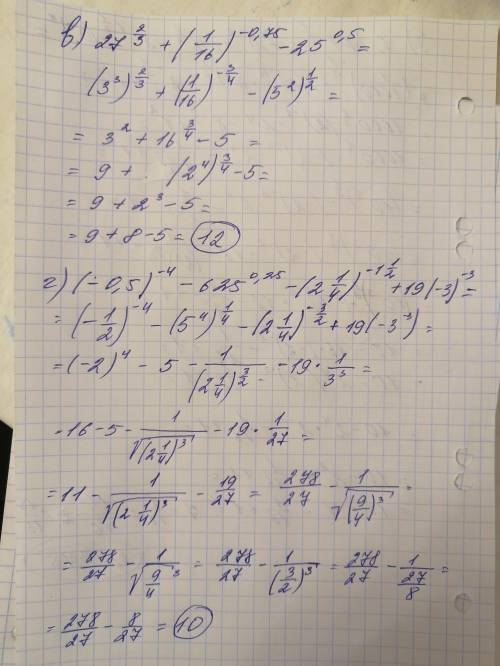 в) 27^(2/3) + (1/16)^(-0,75) - 25^(0,5) =
(3^3)^(2/3) + (1/16)^(-3/4) - (5^2)^(1/2) =
= 3^2 + 16^(3/4) - 5 =
= 9 + (2^4)^(3/4) - 5 =
= 9 + 2^3 - 5 =
= 9 + 8 - 5 = 12
г) (-0,5)^(-4) - 625^(0,25) - (2 1/4)^(-1 1/2) + 19(-3)^(-3) =
= (-1/2)^(-4) - (5^4)^(1/4) - (2 1/4)^(-3/2) + 19(-3^(-3)) =
= (-2)^4 - 5 - 1/(2 1/4)^(3/2) - 19 · 1/3^3 =
= 16 - 5 - 1/√((2 1/4)^3) - 19 · 1/27 =
= 11 - 1/√((2 1/4)^3) - 19/27 = 278/27 - 1/√((9/4)^3) =
= 278/27 - 1/√(9/4)^3 = 278/27 - 1/(3/2)^3 = 278/27 - 1/(27/8) =
= 278/27 - 8/27 = 10